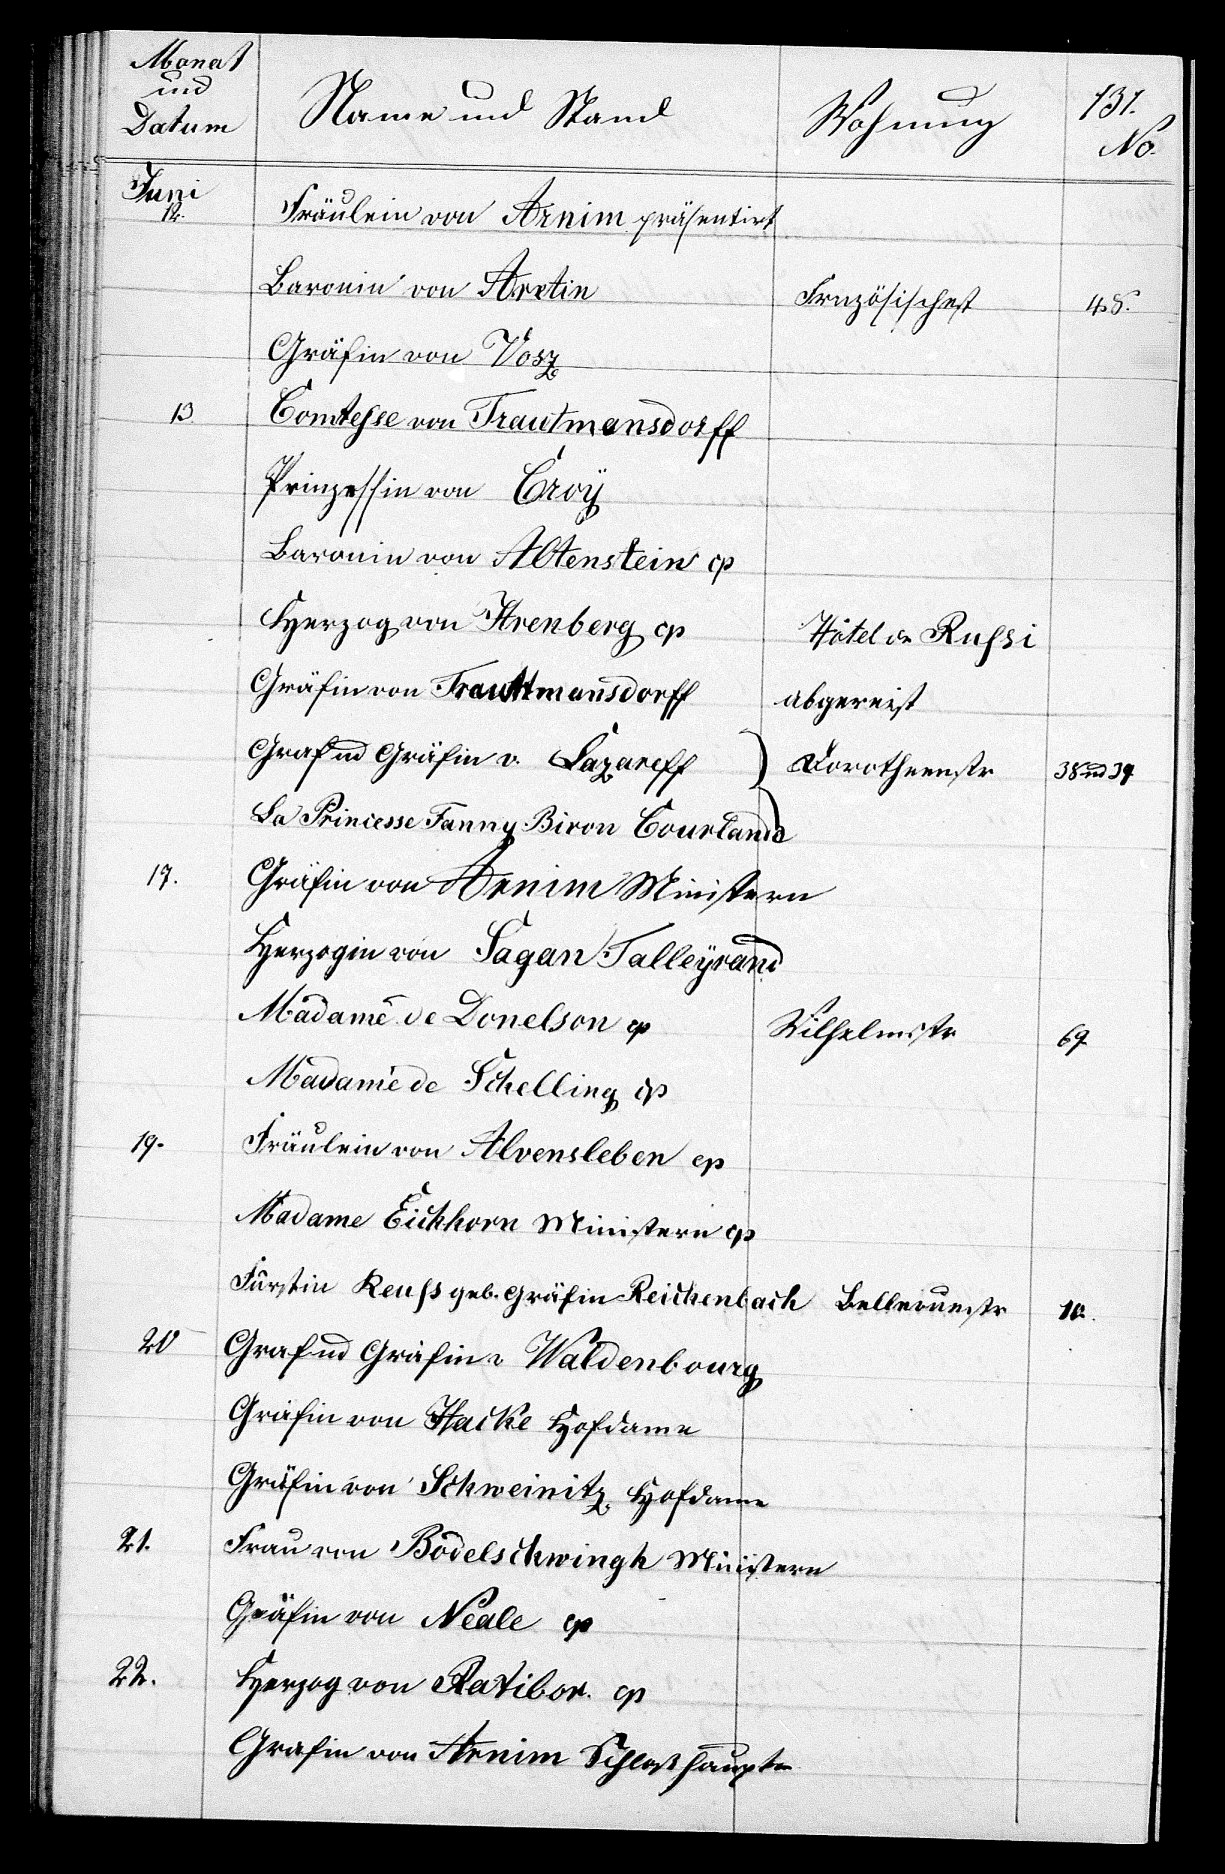 Monat und Datum | Name und Stand | Wohnung | 131. No.
Juni
12. Fräulein von Arnim präsentirt
Baronin von Aretin Frnzösischest 48.
Gräfin von Vosz
13. Comtesse von Trautmansdorff
Prinzessin von Croÿ
Baronin von Altenstein cp
Herzog von Arenberg cp Hôtel de Russi
Gräfin von Trauttmansdorff abgereist
Graf und Gräfin v. Lazareff Dorotheenstr 38 und 39
La Princesse Fanny Biron Courland
17. Gräfin von Arnim Ministern
Herzogin von Sagan Talleÿrand
Madame de Donelson cp Wilhelmstr 69
Madame de Schelling cp
19. Fräulein von Alvensleben cp
Madame Eichhorn Ministern cp
Fürstin Reuss geb. Gräfin Reichenbach Bellevuestr 10.
20 Graf und Gräfin v Waldenbourg
Gräfin von Hacke Hofdame
Gräfin von Schweinitz Hofdame
21. Frau von Bodelschwingh Ministern
Gräfin von Neale cp
22. Herzog von Ratibor. cp
Gräfin von Arnim Schloßhauptm